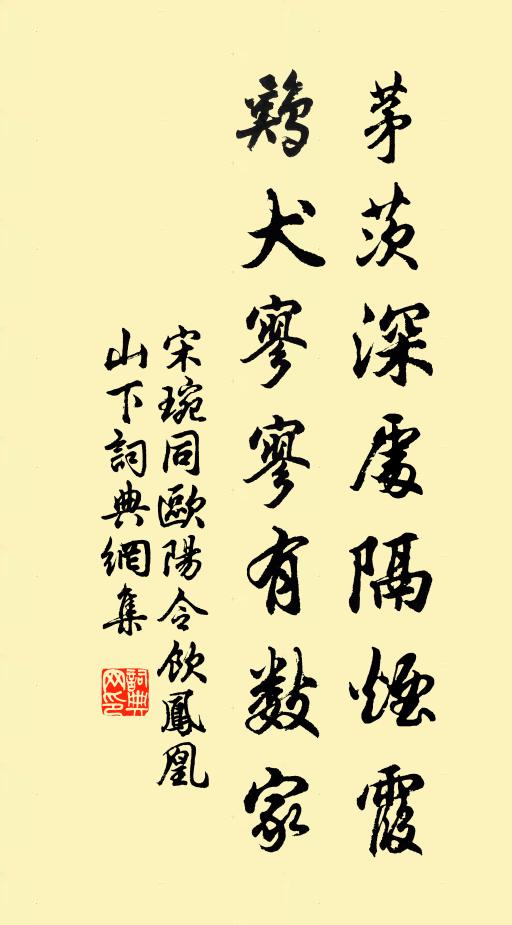 茅茨深處隔煙霞
鷄犬寥寥有數家
宋琬同歐陽令飲鳳凰
山下詞典網集
詞典網印